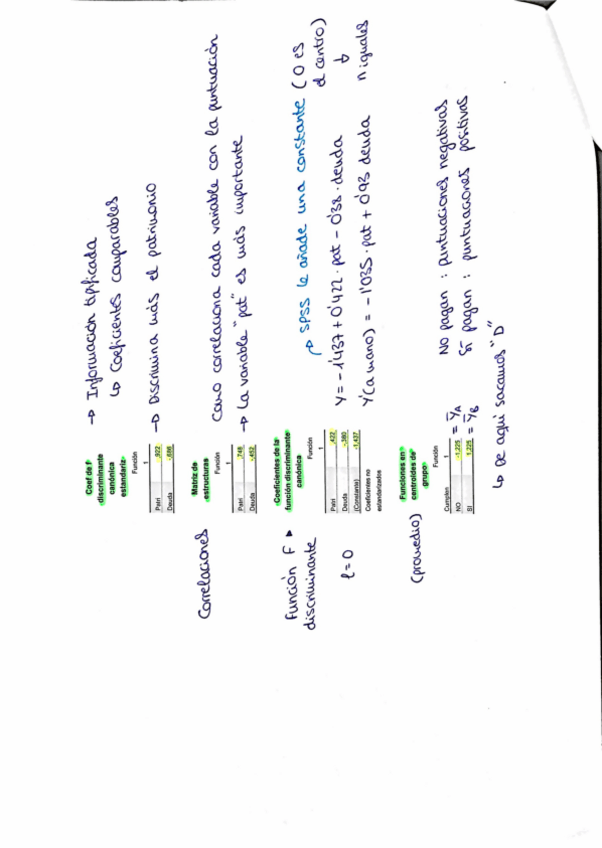 Coef de f
discriminante
canónica
estandariz
Función
1
Patri ,922
Deuda -,686
→ Información tipificada
↳ Coeficientes comparables
→ Discrimina más el patrimonio
Correlaciones
Matriz de
estructuras
Función
1
Patri ,748
Deuda -,452
Como correlaciona cada variable con la puntuación
→ La variable "pat" es más importante
Función F ▸
discriminante
l = 0
Coeficientes de la
función discriminante
canónica
Función
1
Patri ,422
Deuda -,380
(Constante) -1,437
Coeficientes no
estandarizados
→ SPSS le añade una constante (0 es
el centro)
↓
n iguales
Y = -1'437 + 0'422 · pat - 0'38 · deuda
Y'(a mano) = -1'035 · pat + 0'93 deuda
(promedio)
Funciones en
centroides de
grupo
Función
Cumplen 1
NO -1,225 = ȲA
SI 1,225 = ȲB
NO pagan : puntuaciones negativas
Sí pagan : puntuaciones positivas
↳ De aquí sacamos "D"